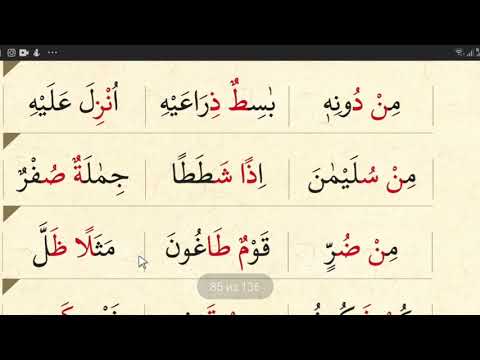 مِنْ دُونِهٖ بٰسِطٌ ذِرَاعَيْهِ اُنْزِلَ عَلَيْهِ
مِنْ سُلَيْمٰنَ اِذًا شَطَطًا جِمٰلَةٌ صُفْرٌ
مِنْ ضُرٍّ قَوْمٌ طَاغُونَ مَثَلًا ظَلَّ
85 из 136